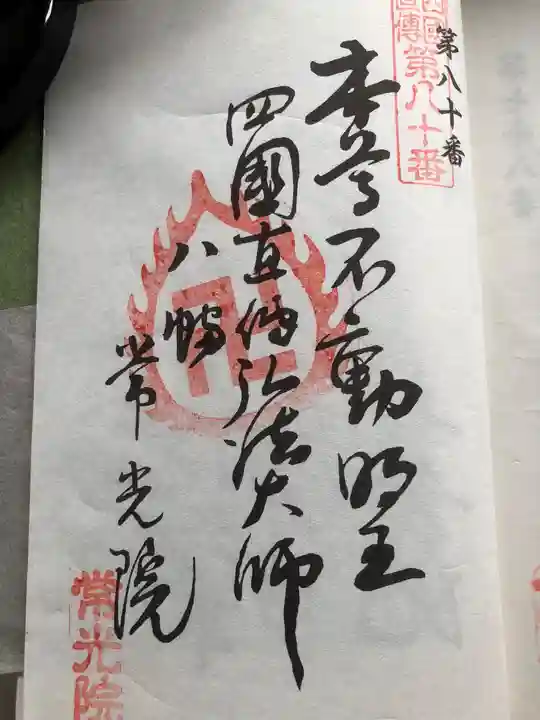 第八十番
四國
直傳
第八十番
本尊不動明王
四國直傳弘法大師
八幡
常光院
常光院